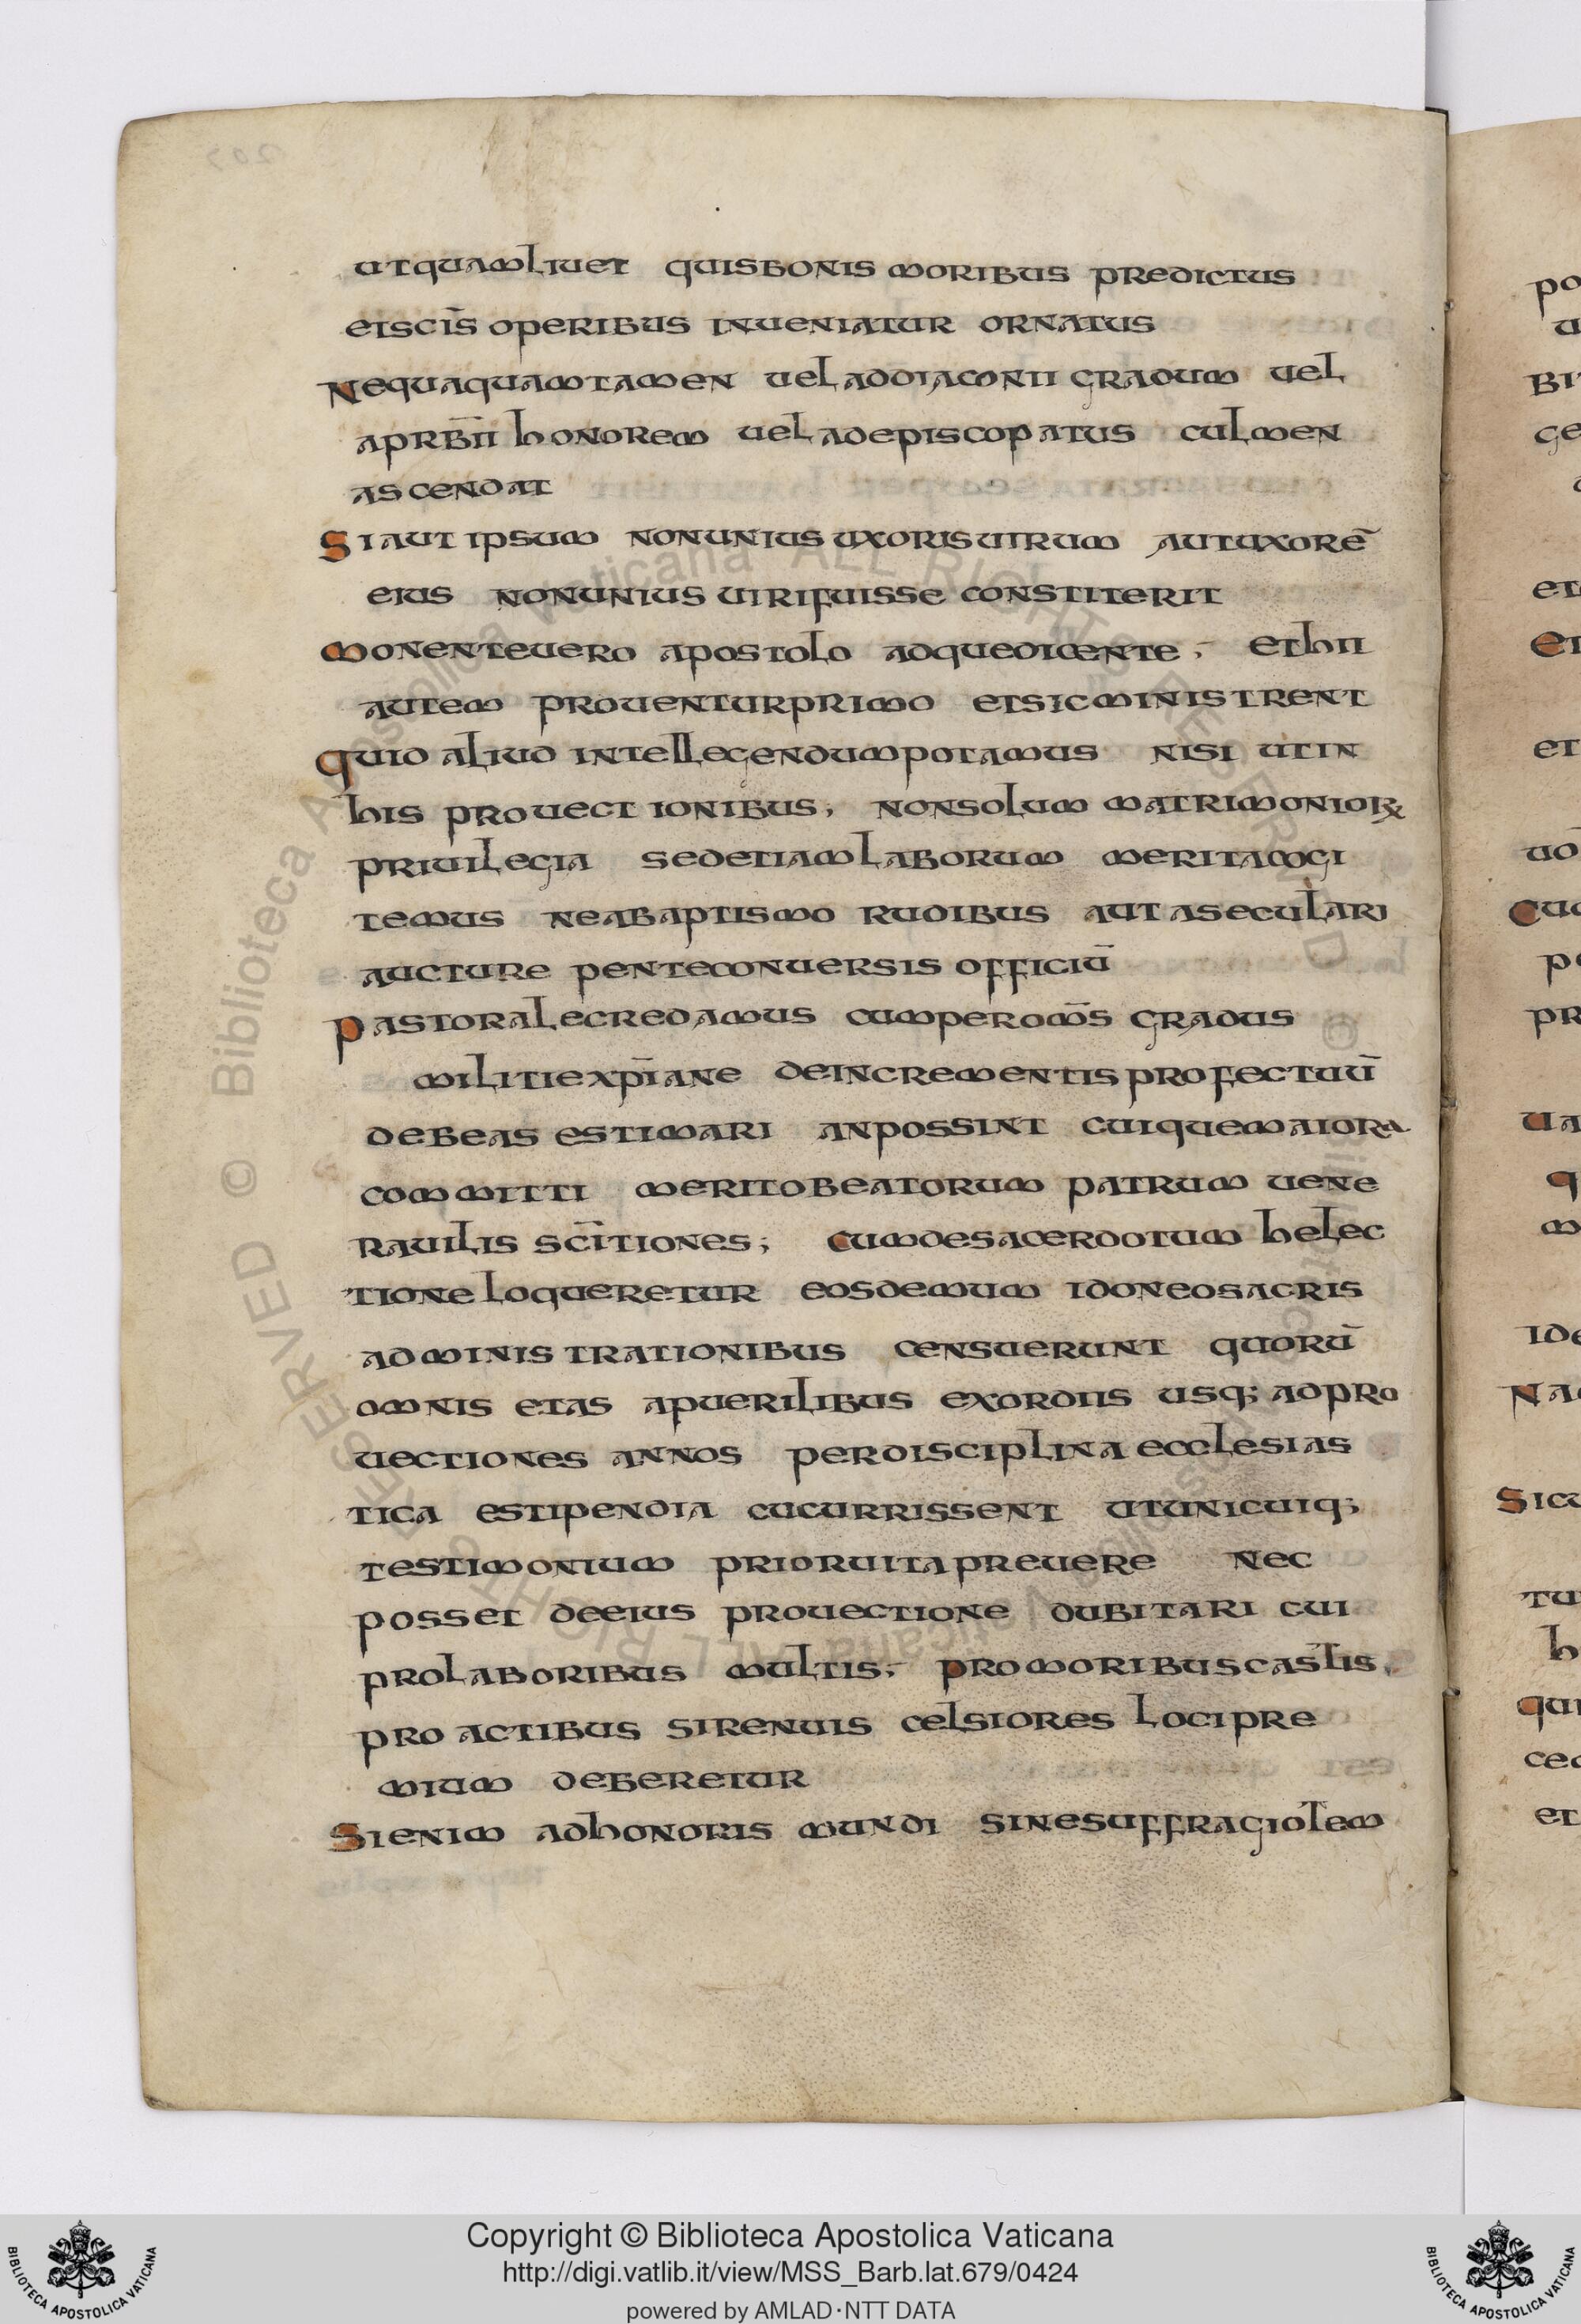 utquamliuet quisbonis moribus predictus
etscīs operibus inueniatur ornatus
Nequaquamtamen uel addiaconii gradum uel
aprb̄ii honorem uel adepiscopatus culmen
ascendat
Siaut ipsum nonunius uxorisuirum autuxorē
eius nonunius uirifuisse constiterit
monenteuero apostolo adquedicente; ethii
autem prouenturprimo etsicministrent
quid aliud intellegendumpotamus nisi utin
his prouectionibus; nonsolum matrimonioꝝ
priuilegia sedetiamlaborum meritacogi
temus neabaptismo rudibus aut aseculari
aucture penteconuersis officiū
pastoralecredamus cumperom̄s gradus
militiexp̄iane deincrementis profectuū
debeas estimari anpossint cuiquemaiora
committi meritobeatorum patrum uene
rauilis scītiones; cumdesacerdotum helec
tioneloqueretur eosdemum idoneosacris
administrationibus censuerunt quorū
omnis etas apuerilibus exordiis usq; adpro
uectiones annos perdisciplina ecclesias
tica estipendia cucurrissent utunicuiq;
testimonium prioruitapreuere nec
posset deeius prouectione dubitari cui
prolaboribus multis; promoribuscastis,
pro actibus sirenuis celsiores locipre
mium deberetur
Sienim adhonoris mundi sinesuffragiotem
Copyright © Biblioteca Apostolica Vaticana
http://digi.vatlib.it/view/MSS_Barb.lat.679/0424
powered by AMLAD·NTT DATA